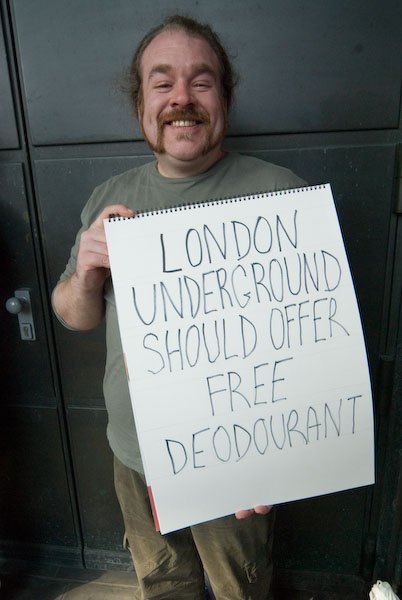 LONDON
UNDERGROUND
SHOULD OFFER
FREE
DEODOURANT